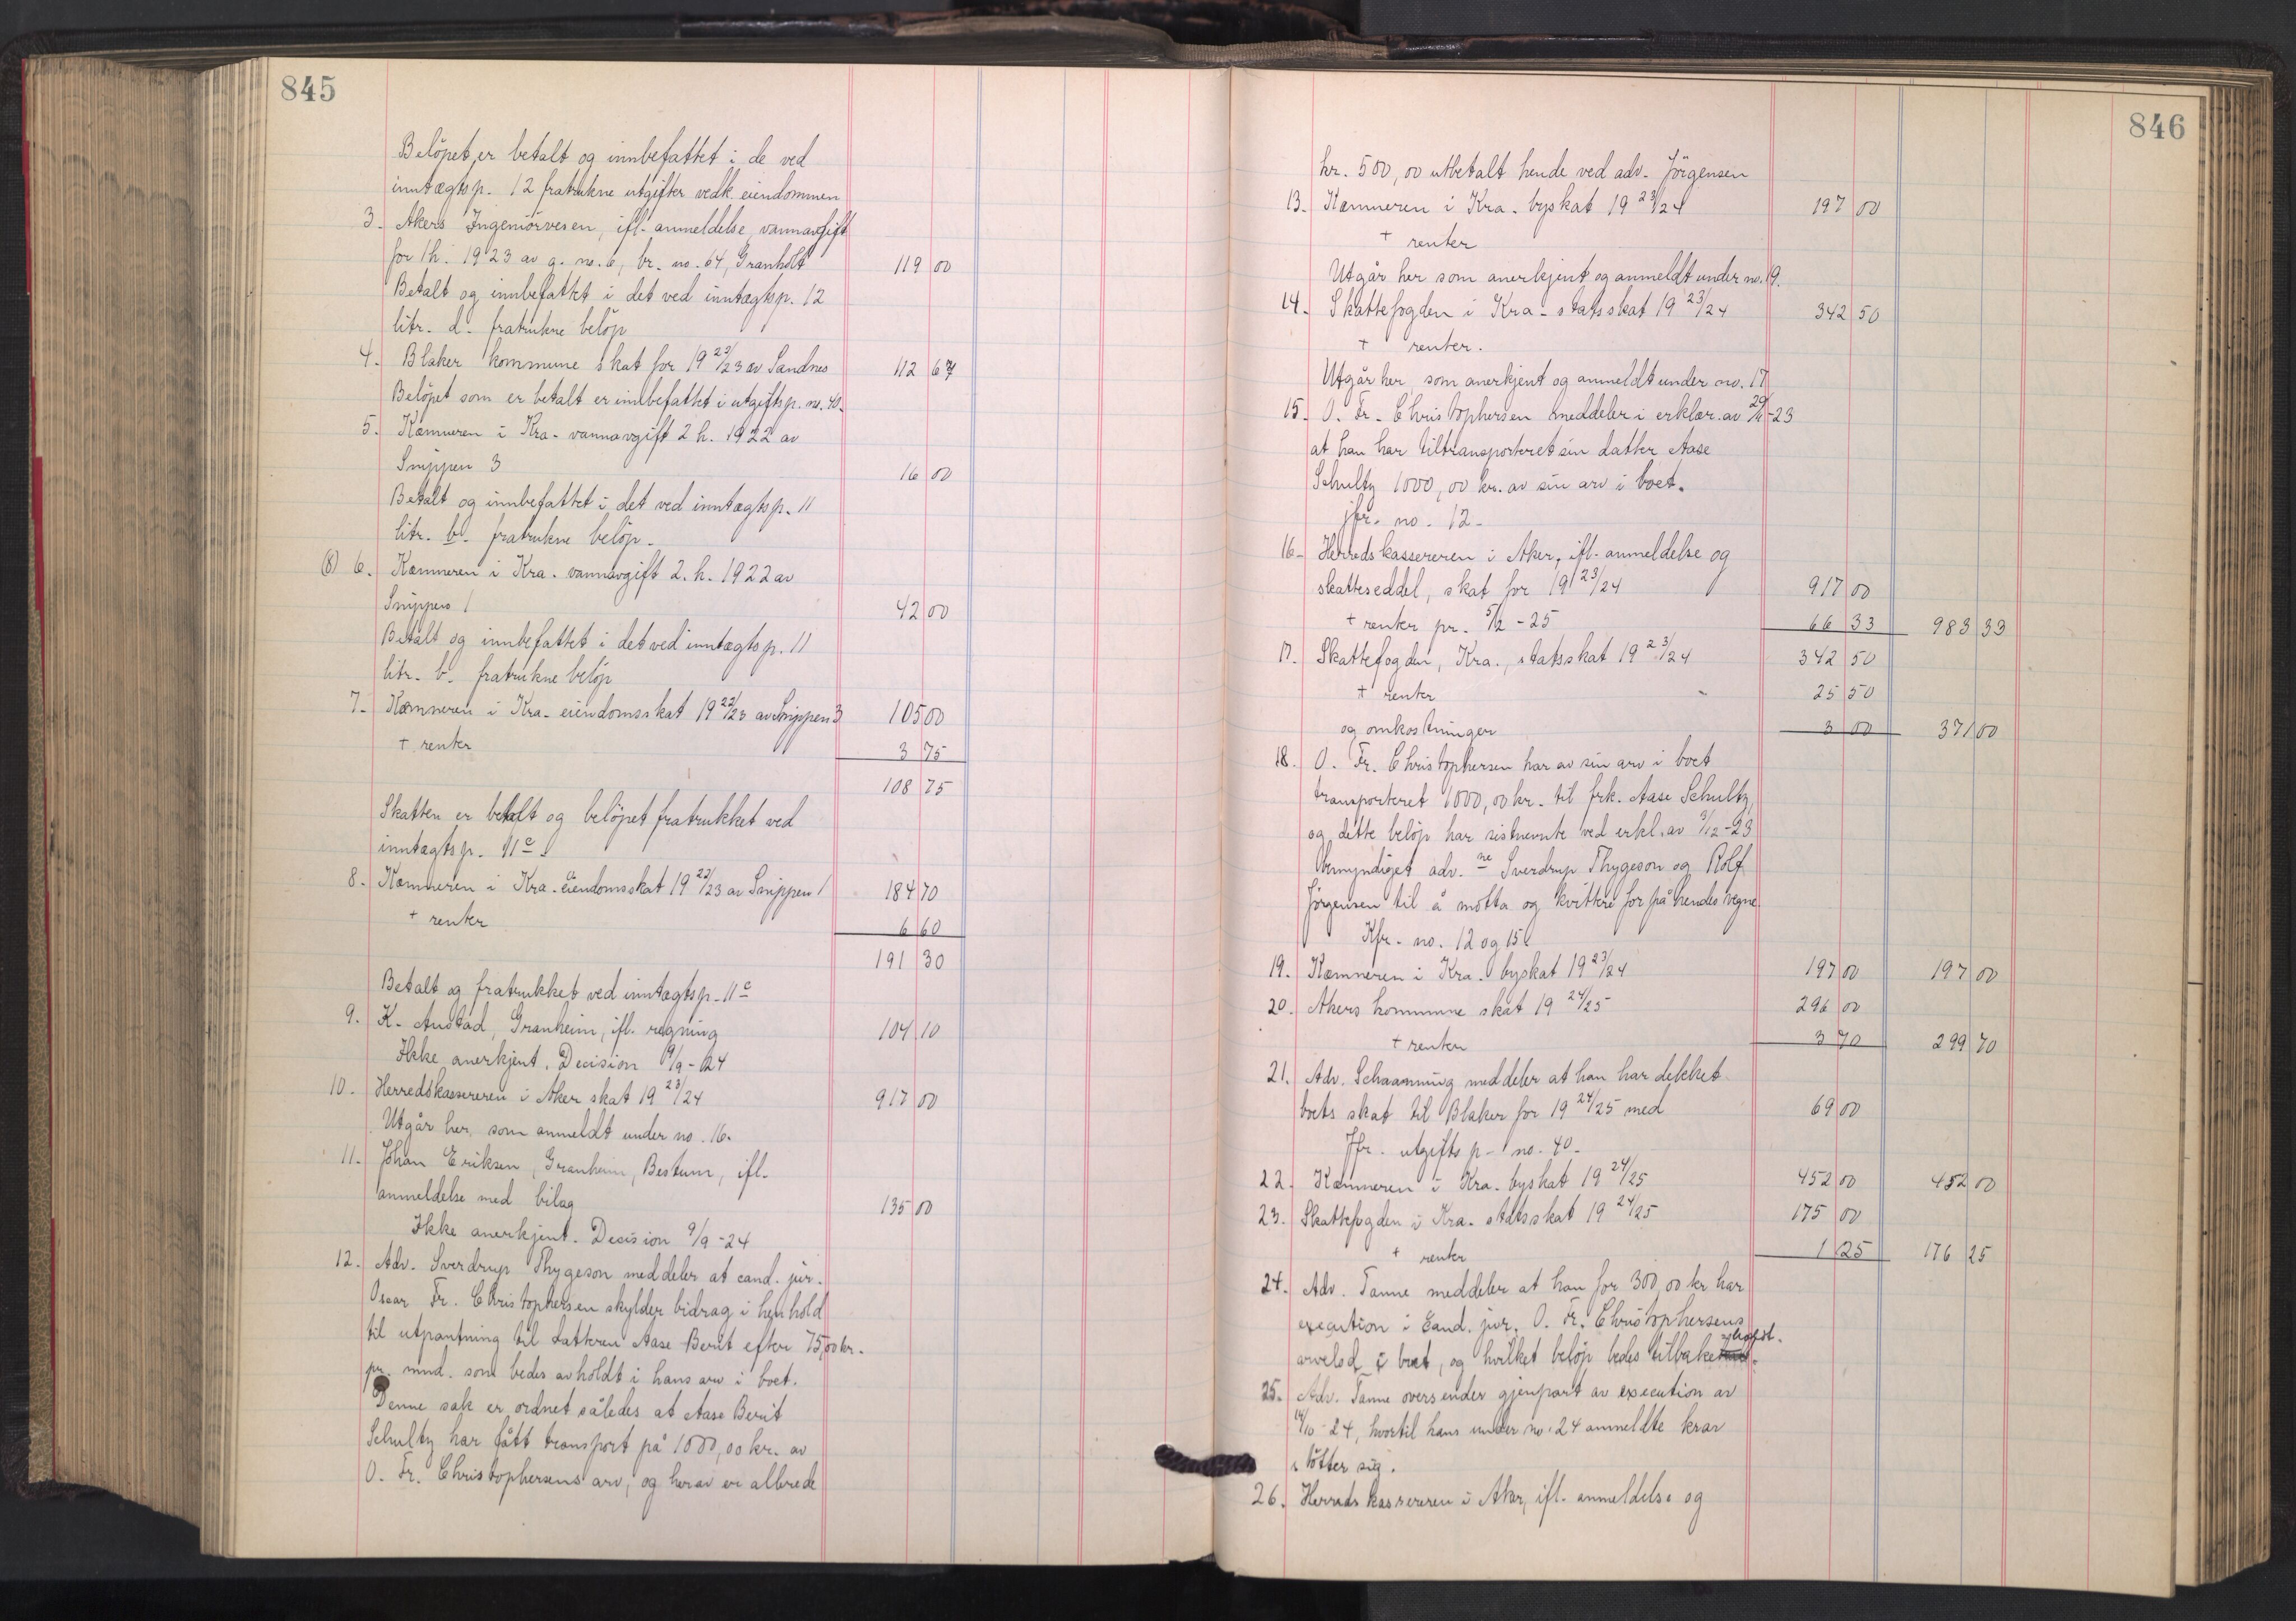 845
Beløpet er betalt og innbefattet i de ved
inntægtsp. 12 fratrukne utgifter vedk. eiendommen
3. Akers Ingeniørvesen, ifl. anmeldelse, vannavgift
for 1 h. 1923 av g. no. 6, br. no. 64, Granholt 119 00
Betalt og innbefattet i det ved inntægtsp. 12
litr. d. fratrukne beløp
4. Blaker kommune skat for 19 22/23 av Sandnes 112 67
Beløpet som er betalt er innbefattet i utgiftsp. no. 40.
5. Kæmneren i Kra. vannavgift 2 h. 1922 av
Snippen 3 16 00
Betalt og innbefattet i det ved inntægtsp. 11
litr. b. fratrukne beløp.
(8) 6. Kæmneren i Kra. vannavgift 2. h. 1922 av
Snippen 1 42 00
Betalt og innbefattet i det ved inntægtsp. 11
litr. b. fratrukne beløp
7. Kæmneren i Kra. eiendomsskat 19 22/23 av Snippen 3 105 00
+ renter 3 75
108 75
Skatten er betalt og beløpet fratrukket ved
inntægtsp. 11 c.
8. Kæmneren i Kra. eiendomsskat 19 22/23 av Snippen 1 184 70
+ renter 6 60
191 30
Betalt og fratrukket ved inntægtsp. 11 c
9. K. Austad, Granheim, ifl. regning 104 10
Ikke anerkjent. Decision 9/9-24
10. Herredskassereren i Aker skat 19 23/24 917 00
Utgår her, som anmeldt under no. 16.
11. Johan Eriksen, Granheim, Bestum, ifl.
anmeldelse med bilag 135 00
Ikke anerkjent. Decision 9/9-24
12. Adv. Sverdrup Thygeson meddeler at cand. jur.
Oscar Fr. Christophersen skylder bidrag i henhold
til utpantning til datteren Aase Berit efter 75,00 kr.
pr. mnd. som bedes avholdt i hans arv i boet.
Denne sak er ordnet således at Aase Berit
Schultz har fått transport på 1000,00 kr. av
O. Fr. Christophersens arv, og herav er allerede
846
kr. 500,00 utbetalt hende ved adv. Jörgensen
13. Kæmneren i Kra. byskat 19 23/24 197 00
+ renter
Utgår her som anerkjent og anmeldt under no. 19.
14. Skattefogden i Kra. statsskat 19 23/24 342 50
+ renter.
Utgår her, som anerkjent og anmeldt under no. 17
15. O. Fr. Christophersen meddeler i erklær. av 29/11-23
at han har tiltransporteret sin datter Aase
Schultz 1000,00 kr. av sin arv i boet.
jfr. no. 12.
16. Herredskassereren i Aker, ifl. anmeldelse og
skatteseddel, skat for 19 23/24 917 00
+ renter pr. 5/2-25 66 33 983 33
17. Skattefogden, Kra., statsskat 19 23/24 342 50
+ renter 25 50
og omkostninger 3 00 371 00
18. O. Fr. Christophersen har av sin arv i boet
transporteret 1000,00 kr. til frk. Aase Schultz,
og dette beløp har sistnevnte ved erkl. av 3/12-23
bemyndiget adv.ne Sverdrup Thygeson og Rolf
Jörgensen til å motta og kvittere for på hendes vegne
Kfr. no. 12 og 15.
19. Kæmneren i Kra. byskat 19 23/24 197 00 197 00
20. Akers kommune skat 19 24/25 296 00
+ renter 3 70 299 70
21. Adv. Schaanning meddeler at han har dekket
boets skat til Blaker for 19 24/25 med 69 00
Jfr. utgifts p. no. 40.
22. Kæmneren i Kra. byskat 19 24/25 452 00 452 00
23. Skattefogden i Kra. statsskat 19 24/25 175 00
+ renter 1 25 176 25
24. Adv. Tanne meddeler at han for 300,00 kr har
execution i Cand. jur. O. Fr. Christophersens
arvelod i boet, og hvilket beløp bedes tilbakeholdt.
25. Adv. Tanne oversender gjenpart av execution av
14/10-24, hvortil hans under no. 24 anmeldte krav
støtter sig.
26. Herredskassereren i Aker, ifl. anmeldelse og